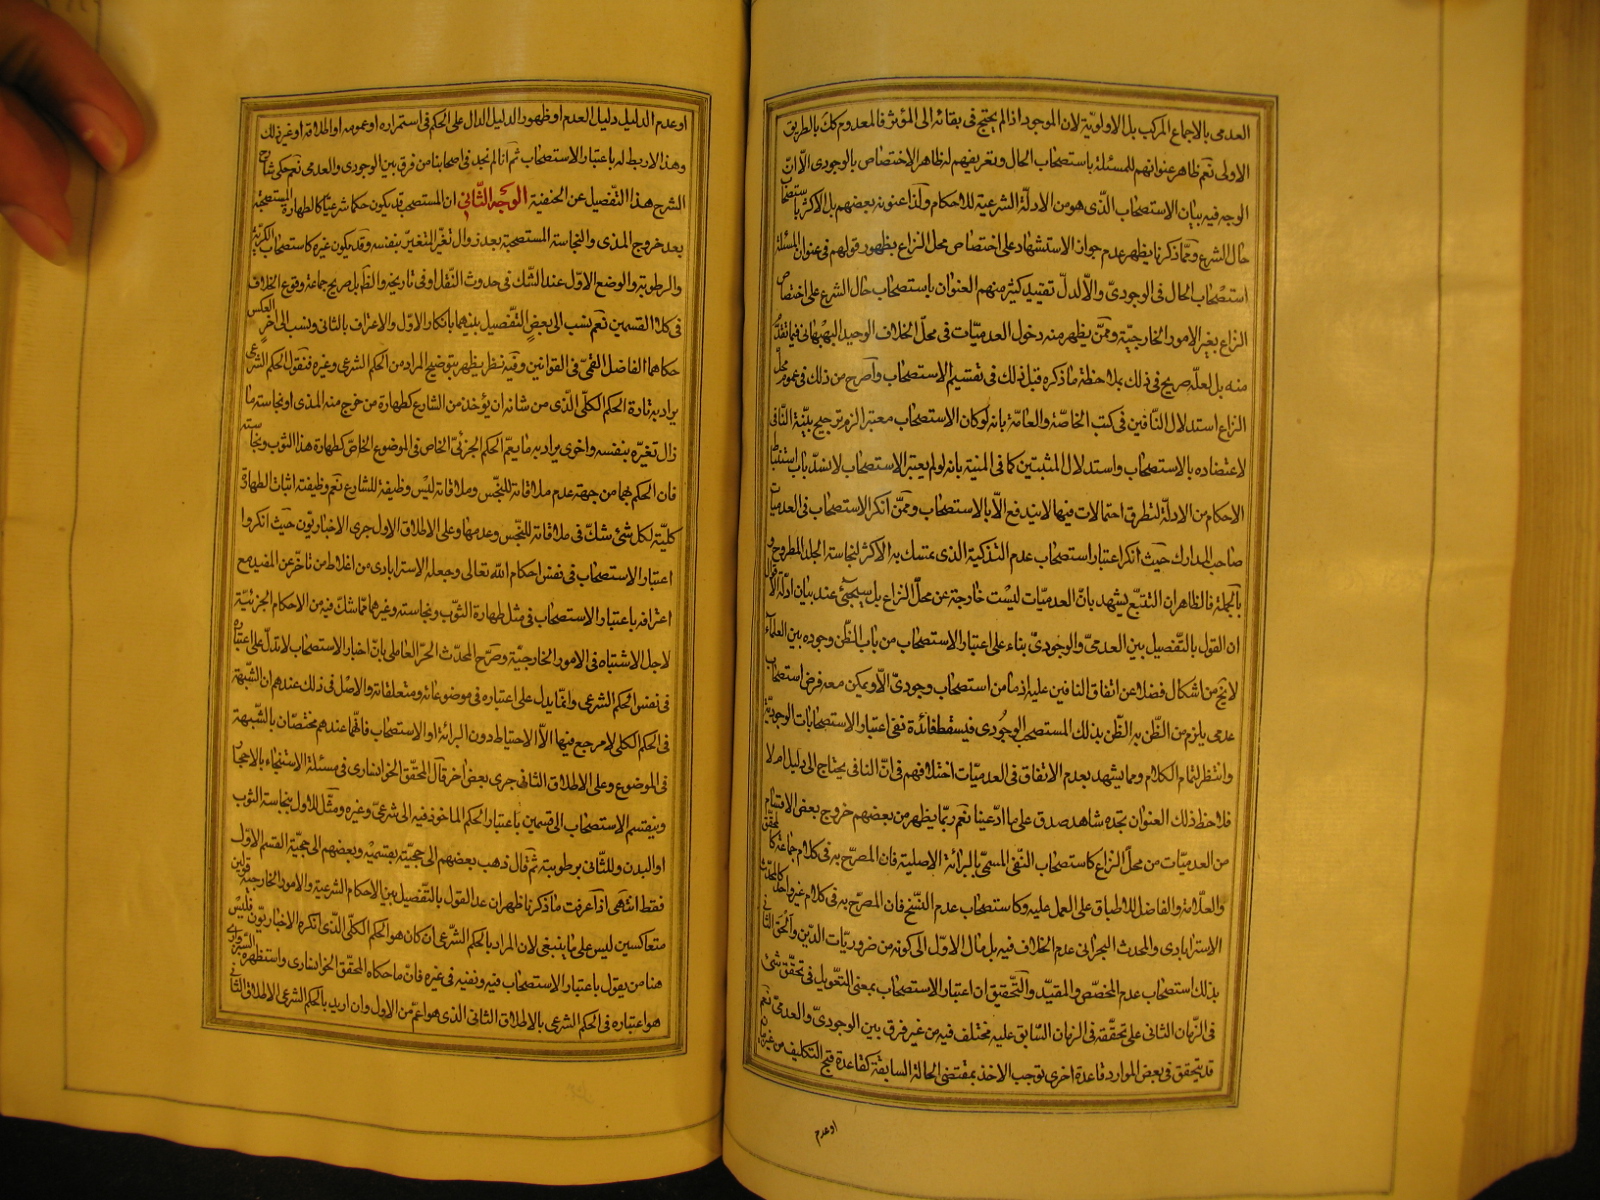 العدمى بالاجماع المركب بل الاولوية لان الموجود اذا لم يحتج فى بقائه الى المؤثر فالمعدوم كك بالطريق
الاولى نعم ظاهر عنوانهم للمسئلة باستصحاب الحال وتعريفهم له ظاهر الاختصاص بالوجودى الا ان
الوجه فيه بيان الاستصحاب الذى هو من الادلة الشرعية للاحكام ولذا عنونه بعضهم بل الاكثر باستصحاب
حال الشرع ومما ذكرنا يظهر عدم جواز الاستشهاد على اختصاص محل النزاع بظهور قولهم فى عنوان المسئلة
استصحاب الحال فى الوجودى والا لدل تقييد كثير منهم العنوان باستصحاب حال الشرع على اختصاص
النزاع بغير الامور الخارجية وممن يظهر منه دخول العدميات فى محل الخلاف الوحيد البهبهانى فيما تقدم
منه بل لعله صريح فى ذلك بملاحظة ما ذكره قبل ذلك فى تقسيم الاستصحاب واصرح من ذلك فى عموم محل
النزاع استدلال النافين فى كتب الخاصة والعامة بانه لو كان الاستصحاب معتبرا لزم ترجيح بينة النافى
لاعتضاده بالاستصحاب واستدلال المثبتين كما فى المنية بانه لو لم يعتبر الاستصحاب لانسد باب استنباط
الاحكام من الادلة لتطرق احتمالات فيها لا يندفع الا بالاستصحاب وممن انكر الاستصحاب فى العدميات
صاحب المدارك حيث انكر اعتبار استصحاب عدم التذكية الذى تمسك به الاكثر لنجاسة الجلد المطروح و
بالجملة فالظاهر ان التتبع يشهد بان العدميات ليست خارجة عن محل النزاع بل سيجئ عند بيان ادلة الاقوال
ان القول بالتفصيل بين العدمى والوجودى بناء على اعتبار الاستصحاب من باب الظن وجوده بين العلماء
لا يخ من اشكال فضلا عن اتفاق النافين عليه اذ ما من استصحاب وجودى الا ويمكن معه فرض استصحاب
عدمى يلزم من الظن به الظن بذلك المستصحب الوجودى فيسقط فائدة نفى اعتبار الاستصحابات الوجودية
وانتظر لتمام الكلام ومما يشهد بعدم الاتفاق فى العدميات اختلافهم فى ان النافى يحتاج الى دليل ام لا
فلاحظ ذلك العنوان تجده شاهد صدق على ما ادعينا نعم ربما يظهر من بعضهم خروج بعض الاقسام
من العدميات من محل النزاع كاستصحاب النفى المسمى بالبرائة الاصلية فان المصرح به فى كلام جماعة كالمحقق
والعلامة والفاضل للاطباق على العمل عليه وكاستصحاب عدم النسخ فان المصرح به فى كلام غير واحد كالمحدث
الاسترابادى والمحدث البحرانى عدم الخلاف فيه بل مال الاول الى كونه من ضروريات الدين والحق الثانى
بذلك استصحاب عدم المخصص والمقيد والتحقيق ان اعتبار الاستصحاب بمعنى التعويل فى تحقق شئ
فى الزمان الثانى على تحققه فى الزمان السابق عليه مختلف فيه من غير فرق بين الوجودى والعدمى نعم
قد يتحقق فى بعض الموارد قاعدة اخرى توجب الاخذ بمقتضى الحالة السابقة كقاعدة قبح التكليف من غير بيان
او عدم
او عدم الدليل دليل العدم او ظهور الدليل الدال على الحكم فى استمراره او عمومه او اطلاقه او غير ذلك
وهذا لا ربط له باعتبار الاستصحاب ثم انا لم نجد فى اصحابنا من فرق بين الوجودى والعدمى نعم حكى شارح
الشرح هذا التفصيل عن الحنفية الوجه الثانى ان المستصحب قد يكون حكما شرعيا كالطهارة المستصحبة
بعد خروج المذى والنجاسة المستصحبة بعد زوال تغير المتغير بنفسه وقد يكون غيره كاستصحاب الكرية
والرطوبة والوضع الاول عند الشك فى حدوث النقل او فى تاريخه والظ بل صريح جماعة وقوع الخلاف
فى كلا القسمين نعم نسب الى بعض التفصيل بينهما بانكار الاول والاعتراف بالثانى ونسب الى اخر العكس
حكاهما الفاضل القمى فى القوانين وفيه نظر يظهر بتوضيح المراد من الحكم الشرعى وغيره فنقول الحكم الشرعى
يراد به تارة الحكم الكلى الذى من شانه ان يؤخذ من الشارع كطهارة من خرج منه المذى او نجاسة ما
زال تغيره بنفسه واخرى يراد به ما يعم الحكم الجزئى الخاص فى الموضوع الخاص كطهارة هذا الثوب ونجاسته
فان الحكم بهما من جهة عدم ملاقاته للنجس وملاقاته ليس وظيفة للشارع نعم وظيفته اثبات الطهارة
كلية لكل شئ شك فى ملاقاته للنجس وعدمها وعلى الاطلاق الاول جرى الاخباريون حيث انكروا
اعتبار الاستصحاب فى نفس احكام الله تعالى وجعله الاسترابادى من اغلاط من تاخر عن المفيد مع
اعترافه باعتبار الاستصحاب فى مثل طهارة الثوب ونجاسته وغيرهما مما شك فيه من الاحكام الجزئية
لاجل الاشتباه فى الامور الخارجية وصرح المحدث الحر العاملى بان اخبار الاستصحاب لا تدل على اعتباره
فى نفس الحكم الشرعى وانما يدل على اعتباره فى موضوعاته ومتعلقاته والاصل فى ذلك عندهم ان الشبهة
فى الحكم الكلى لا مرجع فيها الا الاحتياط دون البرائة او الاستصحاب فانهما عندهم مختصان بالشبهة
فى الموضوع وعلى الاطلاق الثانى جرى بعض اخر قال المحقق الخوانسارى فى مسئلة الاستنجاء بالاحجار
وينقسم الاستصحاب الى قسمين باعتبار الحكم الماخوذ فيه الى شرعى وغيره ومثل للاول بنجاسة الثوب
او البدن وللثانى برطوبته ثم قال ذهب بعضهم الى حجيته بقسميه وبعضهم الى حجية القسم الاول
فقط انتهى اذا عرفت ما ذكرنا ظهر ان عد القول بالتفصيل بين الاحكام الشرعية والامور الخارجية قولين
متعاكسين ليس على ما ينبغى لان المراد بالحكم الشرعى ان كان هو الحكم الكلى الذى انكره الاخباريون فليس
هنا من يقول باعتبار الاستصحاب فيه ونفيه فى غيره فان ما حكاه المحقق الخوانسارى واستظهره السبزوارى
هو اعتباره فى الحكم الشرعى بالاطلاق الثانى الذى هو اعم من الاول وان اريد بالحكم الشرعى الاطلاق الثانى